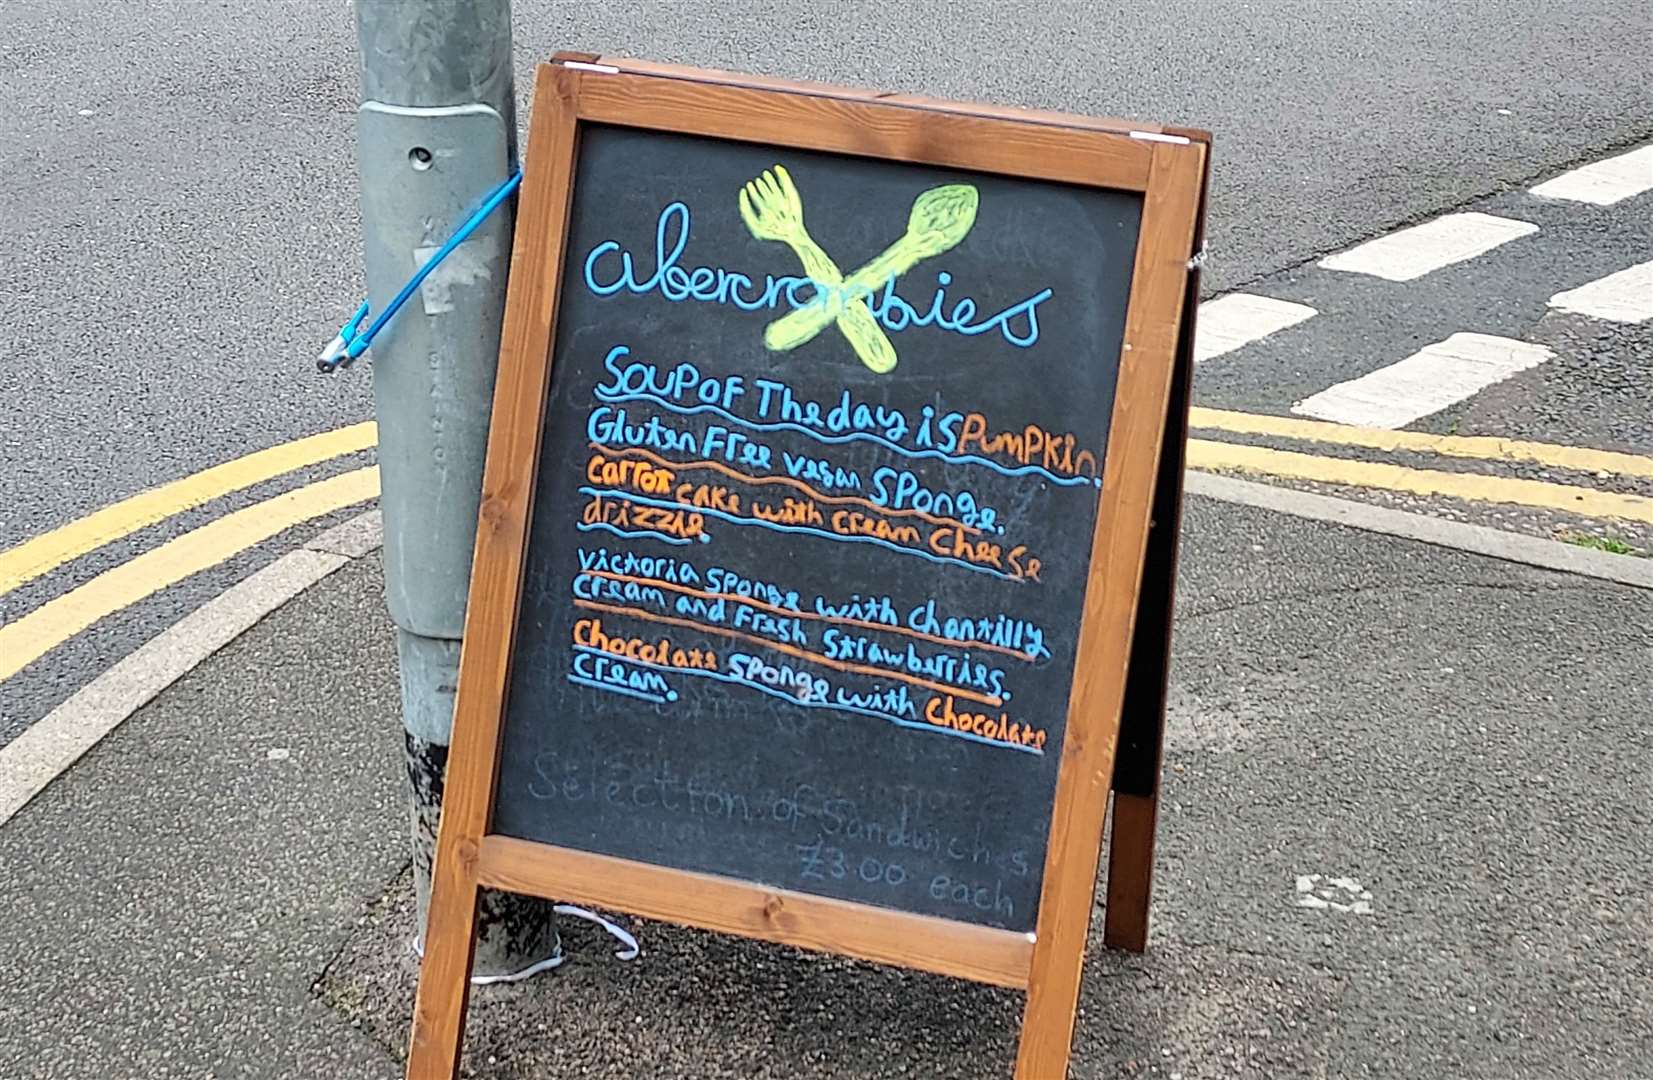 abercrombies
Soup of The day is Pumpkin.
Gluten Free vegan Sponge.
carrot cake with cream cheese
drizzle.
victoria sponge with chantilly
cream and Fresh Strawberries.
chocolate sponge with chocolate
cream.
Selection of Sandwiches
£3.00 each